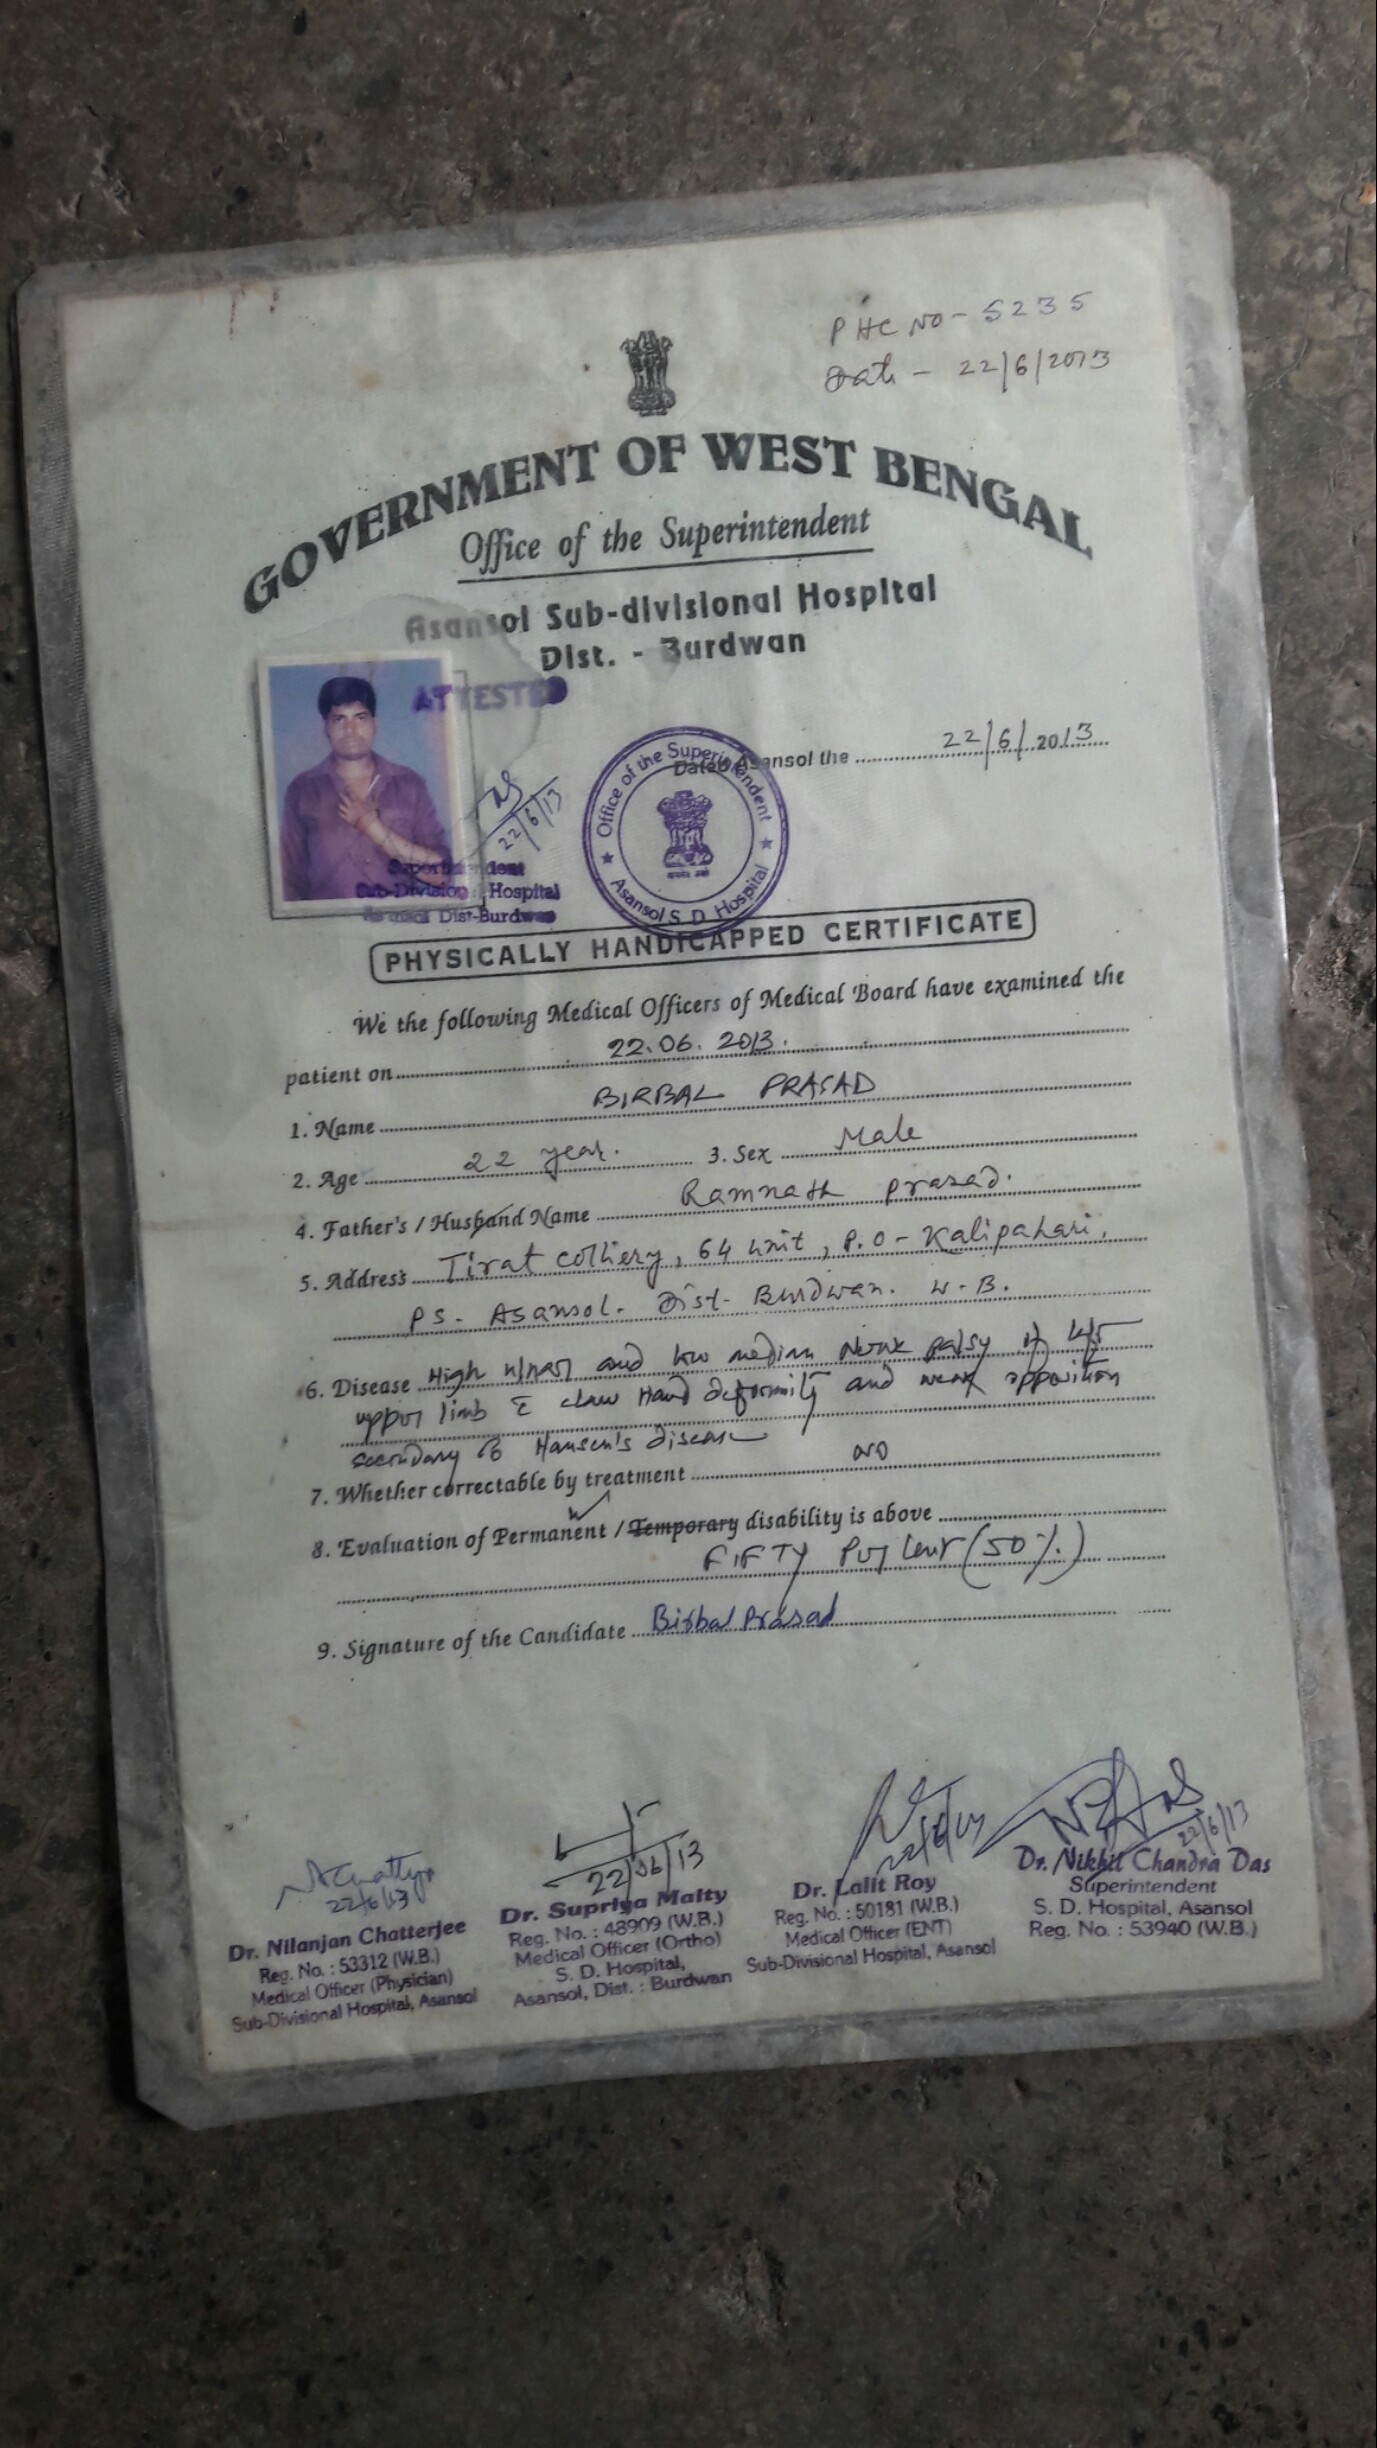 PHC NO - 5235
Date - 22/6/2013
GOVERNMENT OF WEST BENGAL
Office of the Superintendent
Asansol Sub-divisional Hospital
Dist. - Burdwan
ATTESTED
22/6/13
Superintendent
Sub-Divisional Hospital
Asansol Dist-Burdwan
Office of the Superintendent
Asansol S. D. Hospital
Dated Asansol the 22/6/2013
PHYSICALLY HANDICAPPED CERTIFICATE
We the following Medical Officers of Medical Board have examined the
patient on 22.06.2013.
1. Name BIRBAL PRASAD
2. Age 22 year. 3. Sex Male
4. Father's / Husband Name Ramnath Prasad.
5. Address Tirat Colliery, 64 unit, P.O - Kalipahari,
PS. Asansol. Dist- Burdwan. W.B.
6. Disease High ulnar and low median nerve palsy of left
upper limb c claw Hand deformity and weak opposition
secondary to Hansen's disease
7. Whether correctable by treatment NO
8. Evaluation of Permanent / Temporary disability is above
FIFTY Per cent (50%)
9. Signature of the Candidate Birbal Prasad
22/6/13
Dr. Nilanjan Chatterjee
Reg. No. : 53312 (W.B.)
Medical Officer (Physician)
Sub-Divisional Hospital, Asansol
22/06/13
Dr. Supriya Maity
Reg. No. : 48909 (W.B.)
Medical Officer (Ortho)
S. D. Hospital,
Asansol, Dist. : Burdwan
Dr. Lalit Roy
Reg. No. : 50181 (W.B.)
Medical Officer (ENT)
Sub-Divisional Hospital, Asansol
22/6/13
Dr. Nikhil Chandra Das
Superintendent
S. D. Hospital, Asansol
Reg. No. : 53940 (W.B.)